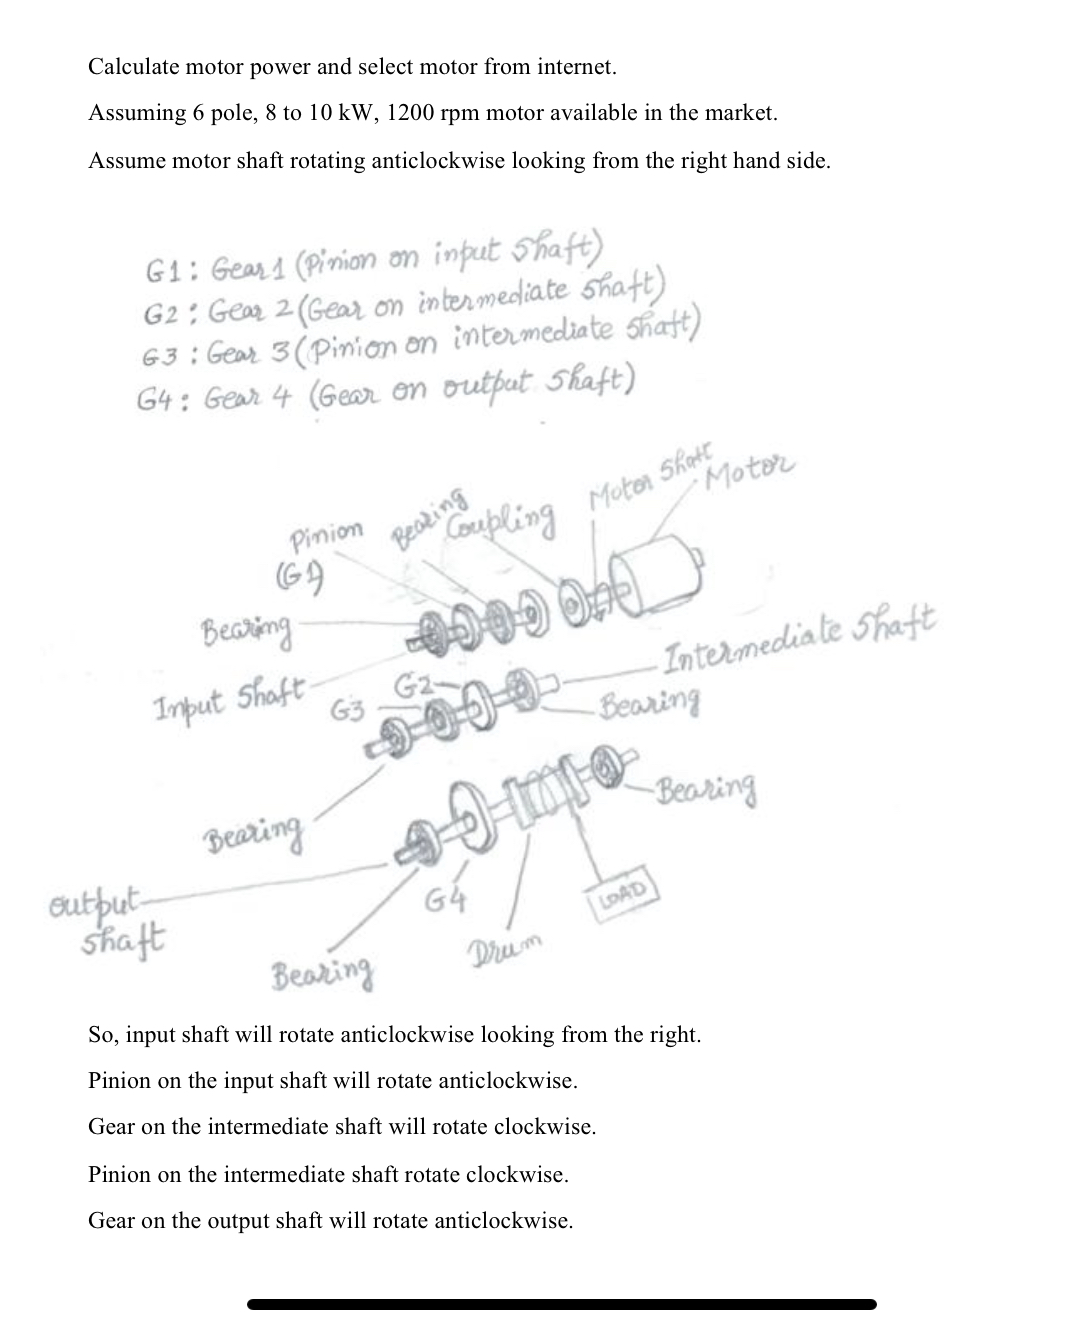 Calculate motor power and select motor from internet.
Assuming 6 pole, 8 to 10 kW, 1200 rpm motor available in the market.
Assume motor shaft rotating anticlockwise looking from the right hand side.
G1: Gear 1 (Pinion on input shaft)
G2: Gear 2 (Gear on intermediate shaft)
G3: Gear 3 (Pinion on intermediate shaft)
G4: Gear 4 (Gear on output shaft)
Motor Shaft
Motor
Bearing
Coupling
Pinion
(G1)
Bearing
Intermediate Shaft
Input Shaft
G2
G3
Bearing
Bearing
Bearing
output
shaft
G4
LOAD
Drum
Bearing
So, input shaft will rotate anticlockwise looking from the right.
Pinion on the input shaft will rotate anticlockwise.
Gear on the intermediate shaft will rotate clockwise.
Pinion on the intermediate shaft rotate clockwise.
Gear on the output shaft will rotate anticlockwise.